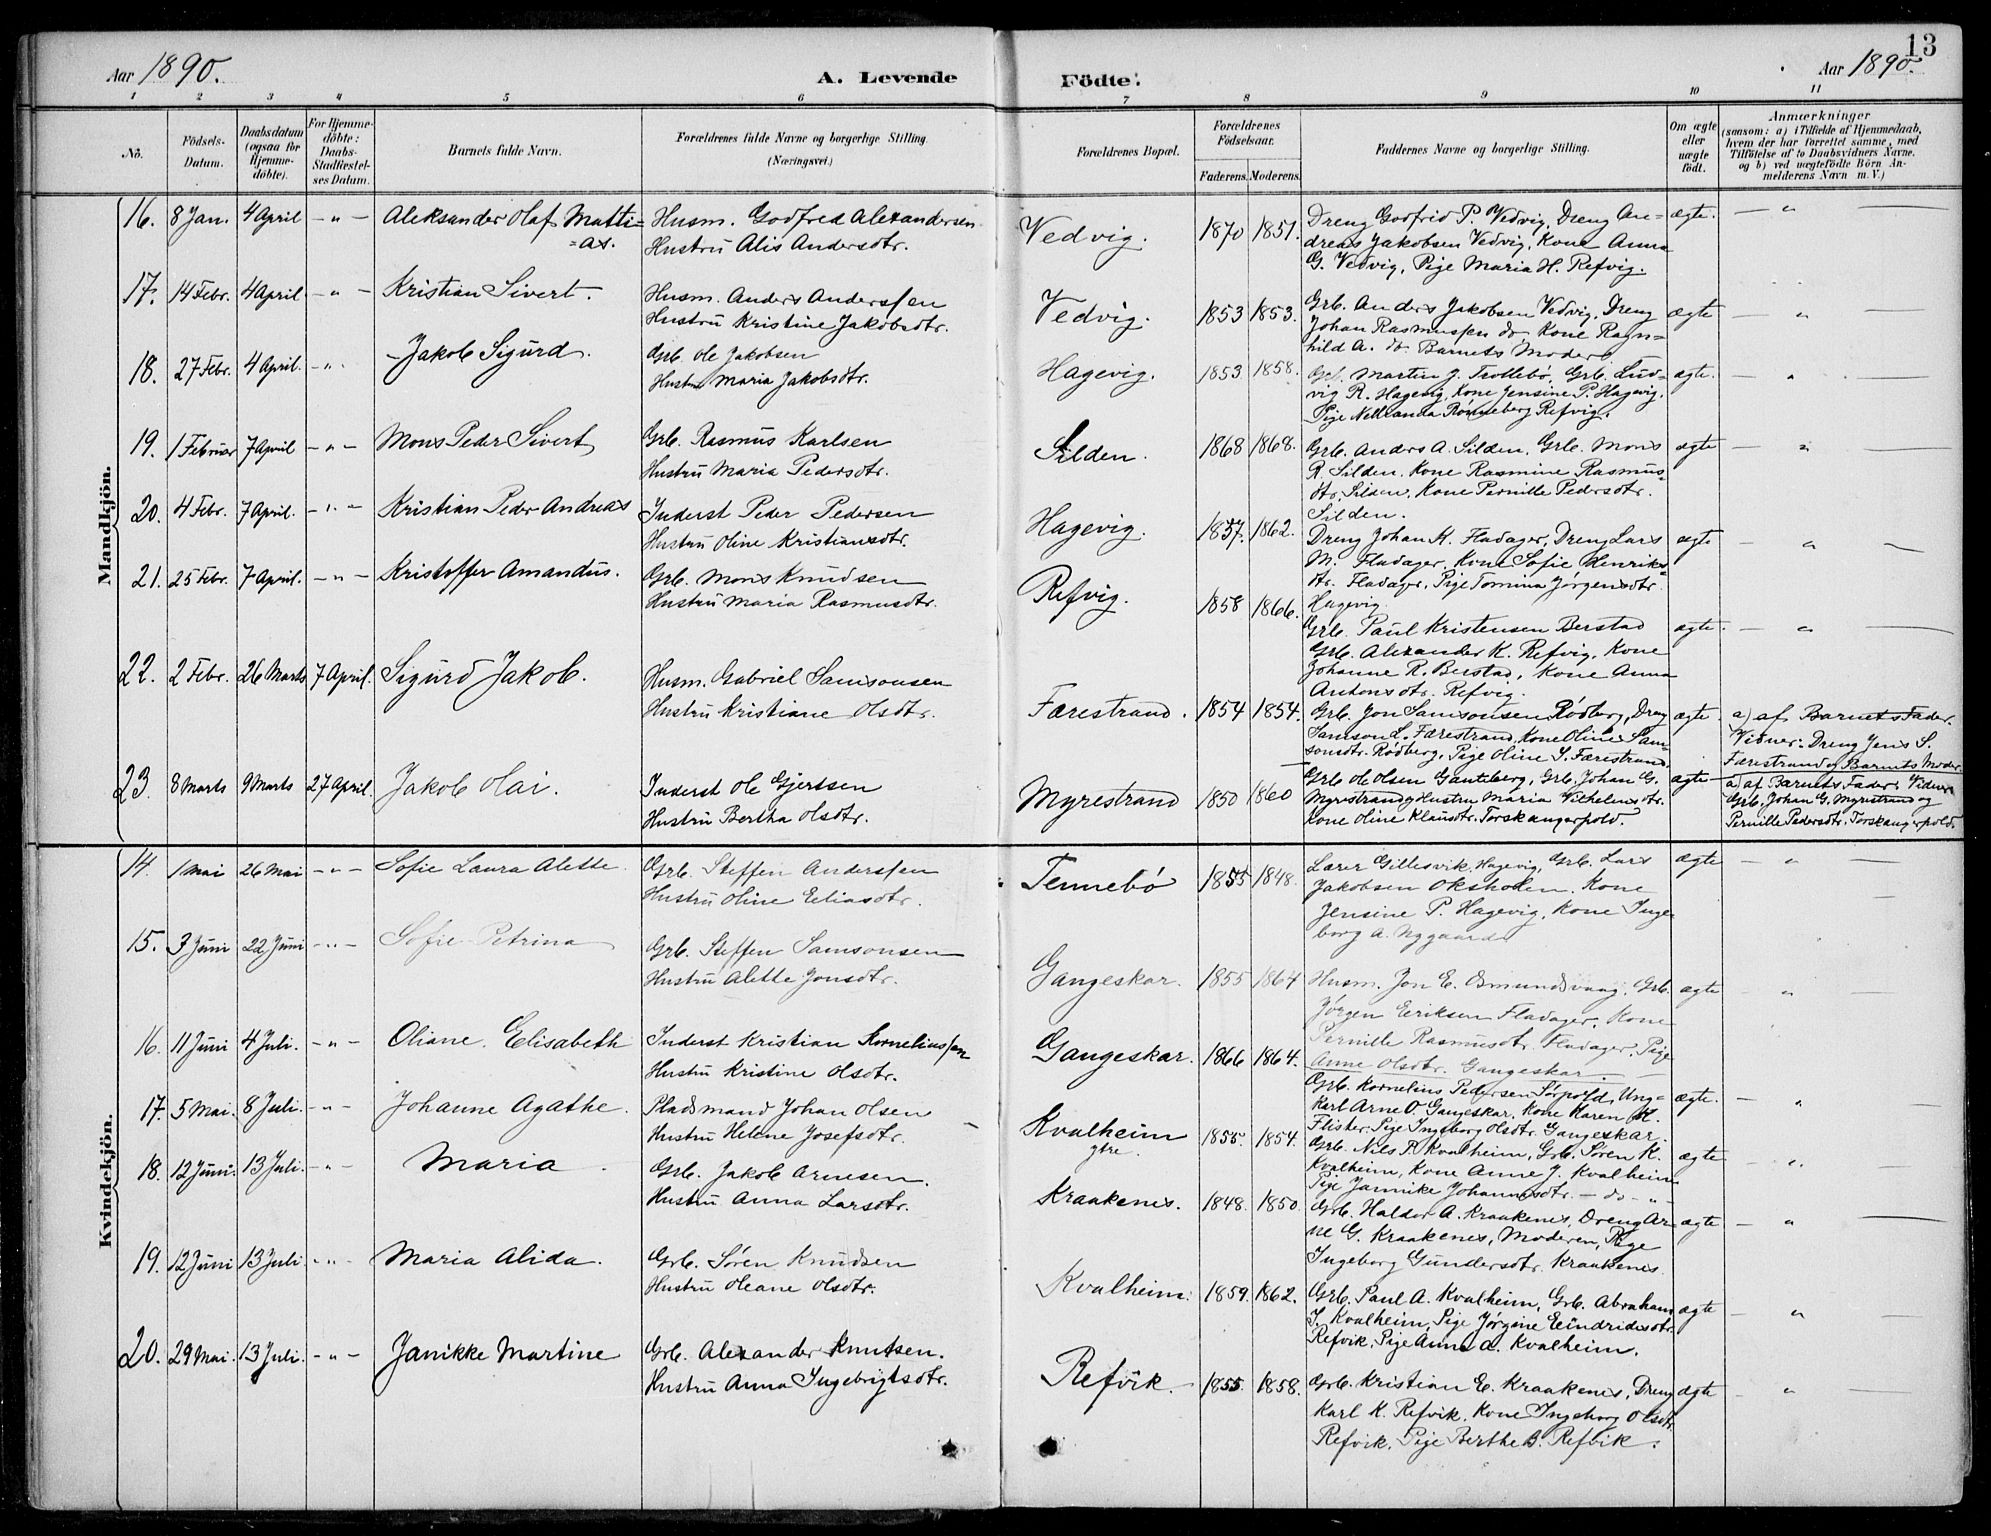 Aar 1890.
A. Levende
Födte.
Aar 1890.
13
1 2 3 4 5 6 7 8 9 10 11
No.
Födsels-Datum.
Daabsdatum (ogsaa for Hjemme-döbte).
For Hjemme-döbte: Daabs-Stadfæstel-ses Datum.
Barnets fulde Navn.
Forældrenes fulde Navne og borgerlige Stilling. (Næringsvei.)
Forældrenes Bopæl.
Forældrenes Födselsaar.
Faderens. Moderens.
Faddernes Navne og borgerlige Stilling.
Om ægte eller uægte födt.
Anmærkninger
(saasom: a) i Tilfælde af Hjemmedaab,
hvem der har forrettet samme, med
Tilföielse af to Daabsvidners Navne,
og b) ved uægtefödte Börn An-
melderens Navn m. V.)
Mandkjön.
16. 8 Jan. 4 April - " - Aleksander Olaf Matti=
=as.
Husm. Godfred Alexandersen
Hustru Alis Andersdtr.
Vedvig. 1870 1851.
Dreng Godfrid P. Vedvig, Dreng An=
dreas Jakobsen Vedvig, Kone Anna
G. Vedvig, Pige Maria H. Refvig.
ægte. - " -
17. 14 Febr. 4 April - " - Kristian Sivert.
Husm. Anders Anderssen
Hustru Kristine Jakobsdtr.
Vedvig. 1853 1853.
Grb. Anders Jakobsen Vedvig, Dreng
Johan Rasmussen do, Kone Ragn=
hild A. do. Barnets Moder
ægte - " -
18. 27 Febr. 4 April. - " - Jakob Sigurd.
Grb. Ole Jakobsen
Hustru Maria Jakobsdtr.
Hagevig. 1853 1858.
Grb. Martin J. Trollebö, Grb. Lud=
vig R. Hagevig, Kone Jensine P. Hagevig,
Pige Nelleanna Rönneberg Refvig.
ægte. - " -
19. 1 Februar 7 April - " - Mons Peder Sivert
Grb. Rasmus Karlsen
Hustru Maria Pedersdtr.
Silden. 1868 1868.
Grb. Anders A. Silden, Grb. Mons
R. Silden, Kone Rasmine Rasmus=
dtr. Silden, Kone Pernille Pedersdtr.
Silden.
ægte - " -
20. 4 Febr. 7 April. - " - Kristian Peder Andreas
Inderst Peder Pedersen
Hustru Oline Kristiansdtr.
Hagevig. 1857. 1862.
Dreng Johan K. Fladager, Dreng Lars
M. Fladager, Kone Sofie Henriks=
dtr. Fladager, Pige Tomina Jörgensdtr.
Hagevig.
ægte - " -
21. 25 Febr. 7 April. - " - Kristoffer Amandus.
Grb. Mons Knudsen
Hustru Maria Rasmusdtr.
Refvig. 1858 1866.
Grb. Paul Kristensen Berstad
Grb. Alexander K. Refvig, Kone
Johanne R. Berstad, Kone Anna
Antonsdtr. Refvig.
ægte. - " -
22. 2 Febr. 26 Marts 7 April. Sigurd Jakob.
Husm. Gabriel Samsonsen
Hustru Kristiane Olsdtr.
Færestrand. 1854 1854.
Grb. Jon Samsonsen Rödberg, Dreng
Samson L. Færestrand, Kone Oline Sam-
sonsdtr. Rödberg, Pige Oline S. Færestrand.
ægte
a) af Barnets Fader.
Vidner: Dreng Jens S.
Færestrand og Barnets Moder
23. 8 Marts 9 Marts 27 April. Jakob Olai.
Inderst Ole Gjertsen
Hustru Bertha Olsdtr.
Myrestrand 1850 1860
Grb. Ole Olsen Ganteberg, Grb. Johan G.
Myrestrand og Hustru Maria Vilhelmsdtr.
Kone Oline Klausdtr. Torskangerpold.
ægte
a) af Barnets Fader. Vidner
Grb. Johan G. Myrestrand og
Pernille Pedersdtr. Torskangerpold.
Kvindekjön.
14. 1 Mai 26 Mai - " - Sofie Laura Alette.
Grb. Steffen Anderssen
Hustru Oline Eliasdtr.
Tennebö 1855 1848.
Lærer Gillesvik, Hagevig, Grb. Lars
Jakobsen Oksholen, Kone
Jensine P. Hagevig, Kone Inge
borg A. Nygaard.
ægte - " -
15. 3 Juni 22 Juni - " - Sofie Petrina
Grb. Steffen Samsonsen
Hustru Alette Jonsdtr.
Gangeskar. 1855 1864
Husm. Jon E. Osmundsvaag, Grb.
Jörgen Eriksen Fladager, Kone
Pernille Rasmusdtr. Fladager, Pige
Anne Olsdtr. Gangeskar.
ægte - " -
16. 11 Juni 4 Juli. - " - Oliane Elisabeth
Inderst Kristian Korneliussen
Hustru Kristine Olsdtr.
Gangeskar. 1866 1864.
Grb. Kornelius Pedersen Sörpold, Ung=
Karl Arne O. Gangeskar, Kone Karen M.
Flister, Pige Ingeborg Olsdtr. Gangeskar.
ægte. - " -
17. 5 Mai. 8 Juli. - " - Johanne Agathe.
Pladsmand Johan Olsen
Hustru Helene Josefsdtr.
Kvalheim
ytre.
1855. 1854.
Grb. Nils R. Kvalheim, Grb. Sören K.
Kvalheim, Kone Anne J. Kvalheim
Pige Jannike Johannesdtr. - do - " -
ægte - " -
18. 12 Juni. 13 Juli. - " - Maria.
Grb. Jakob Arnesen.
Hustru Anna Larsdtr.
Kraakenes. 1848. 1850.
Grb. Haldor A. Kraakenes, Dreng Ar=
ne G. Kraakenes, Moderen, Pige
Ingeborg Gundersdtr. Kraakenes.
ægte - " -
19. 12 Juni 13 Juli. - " - Maria Alida.
Grb. Sören Knudsen
Hustru Oleane Olsdtr.
Kvalheim. 1859. 1862.
Grb. Paul A. Kvalheim, Grb. Abraham
J. Kvalheim, Pige Jörgine Eindridsdtr.
Refvik, Pige Anna A. Kvalheim.
ægte - " -
20. 29 Mai. 13 Juli. - " - Janikke Martine
Grb. Alexander Knutsen.
Hustru Anna Ingebrigtsdtr.
Refvik. 1855. 1858.
Grb. Kristian E. Kraakenes, Dreng
Karl K. Refvik, Kone Ingeborg Olsdtr.
Refvik, Pige Berthe B. Refvik.
ægte - " -